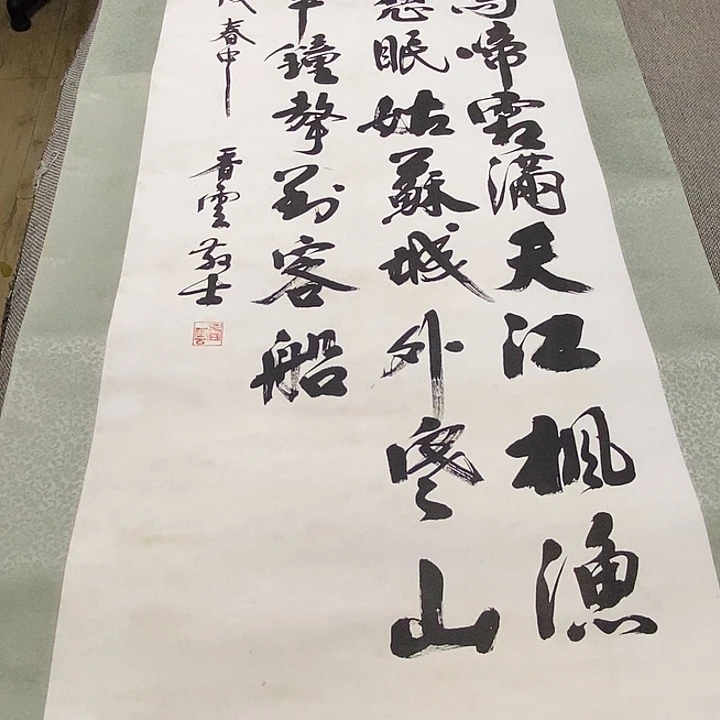 烏啼霜滿天江楓漁
愁眠姑蘇城外寒山
半鐘聲到客船
春中 晋雲